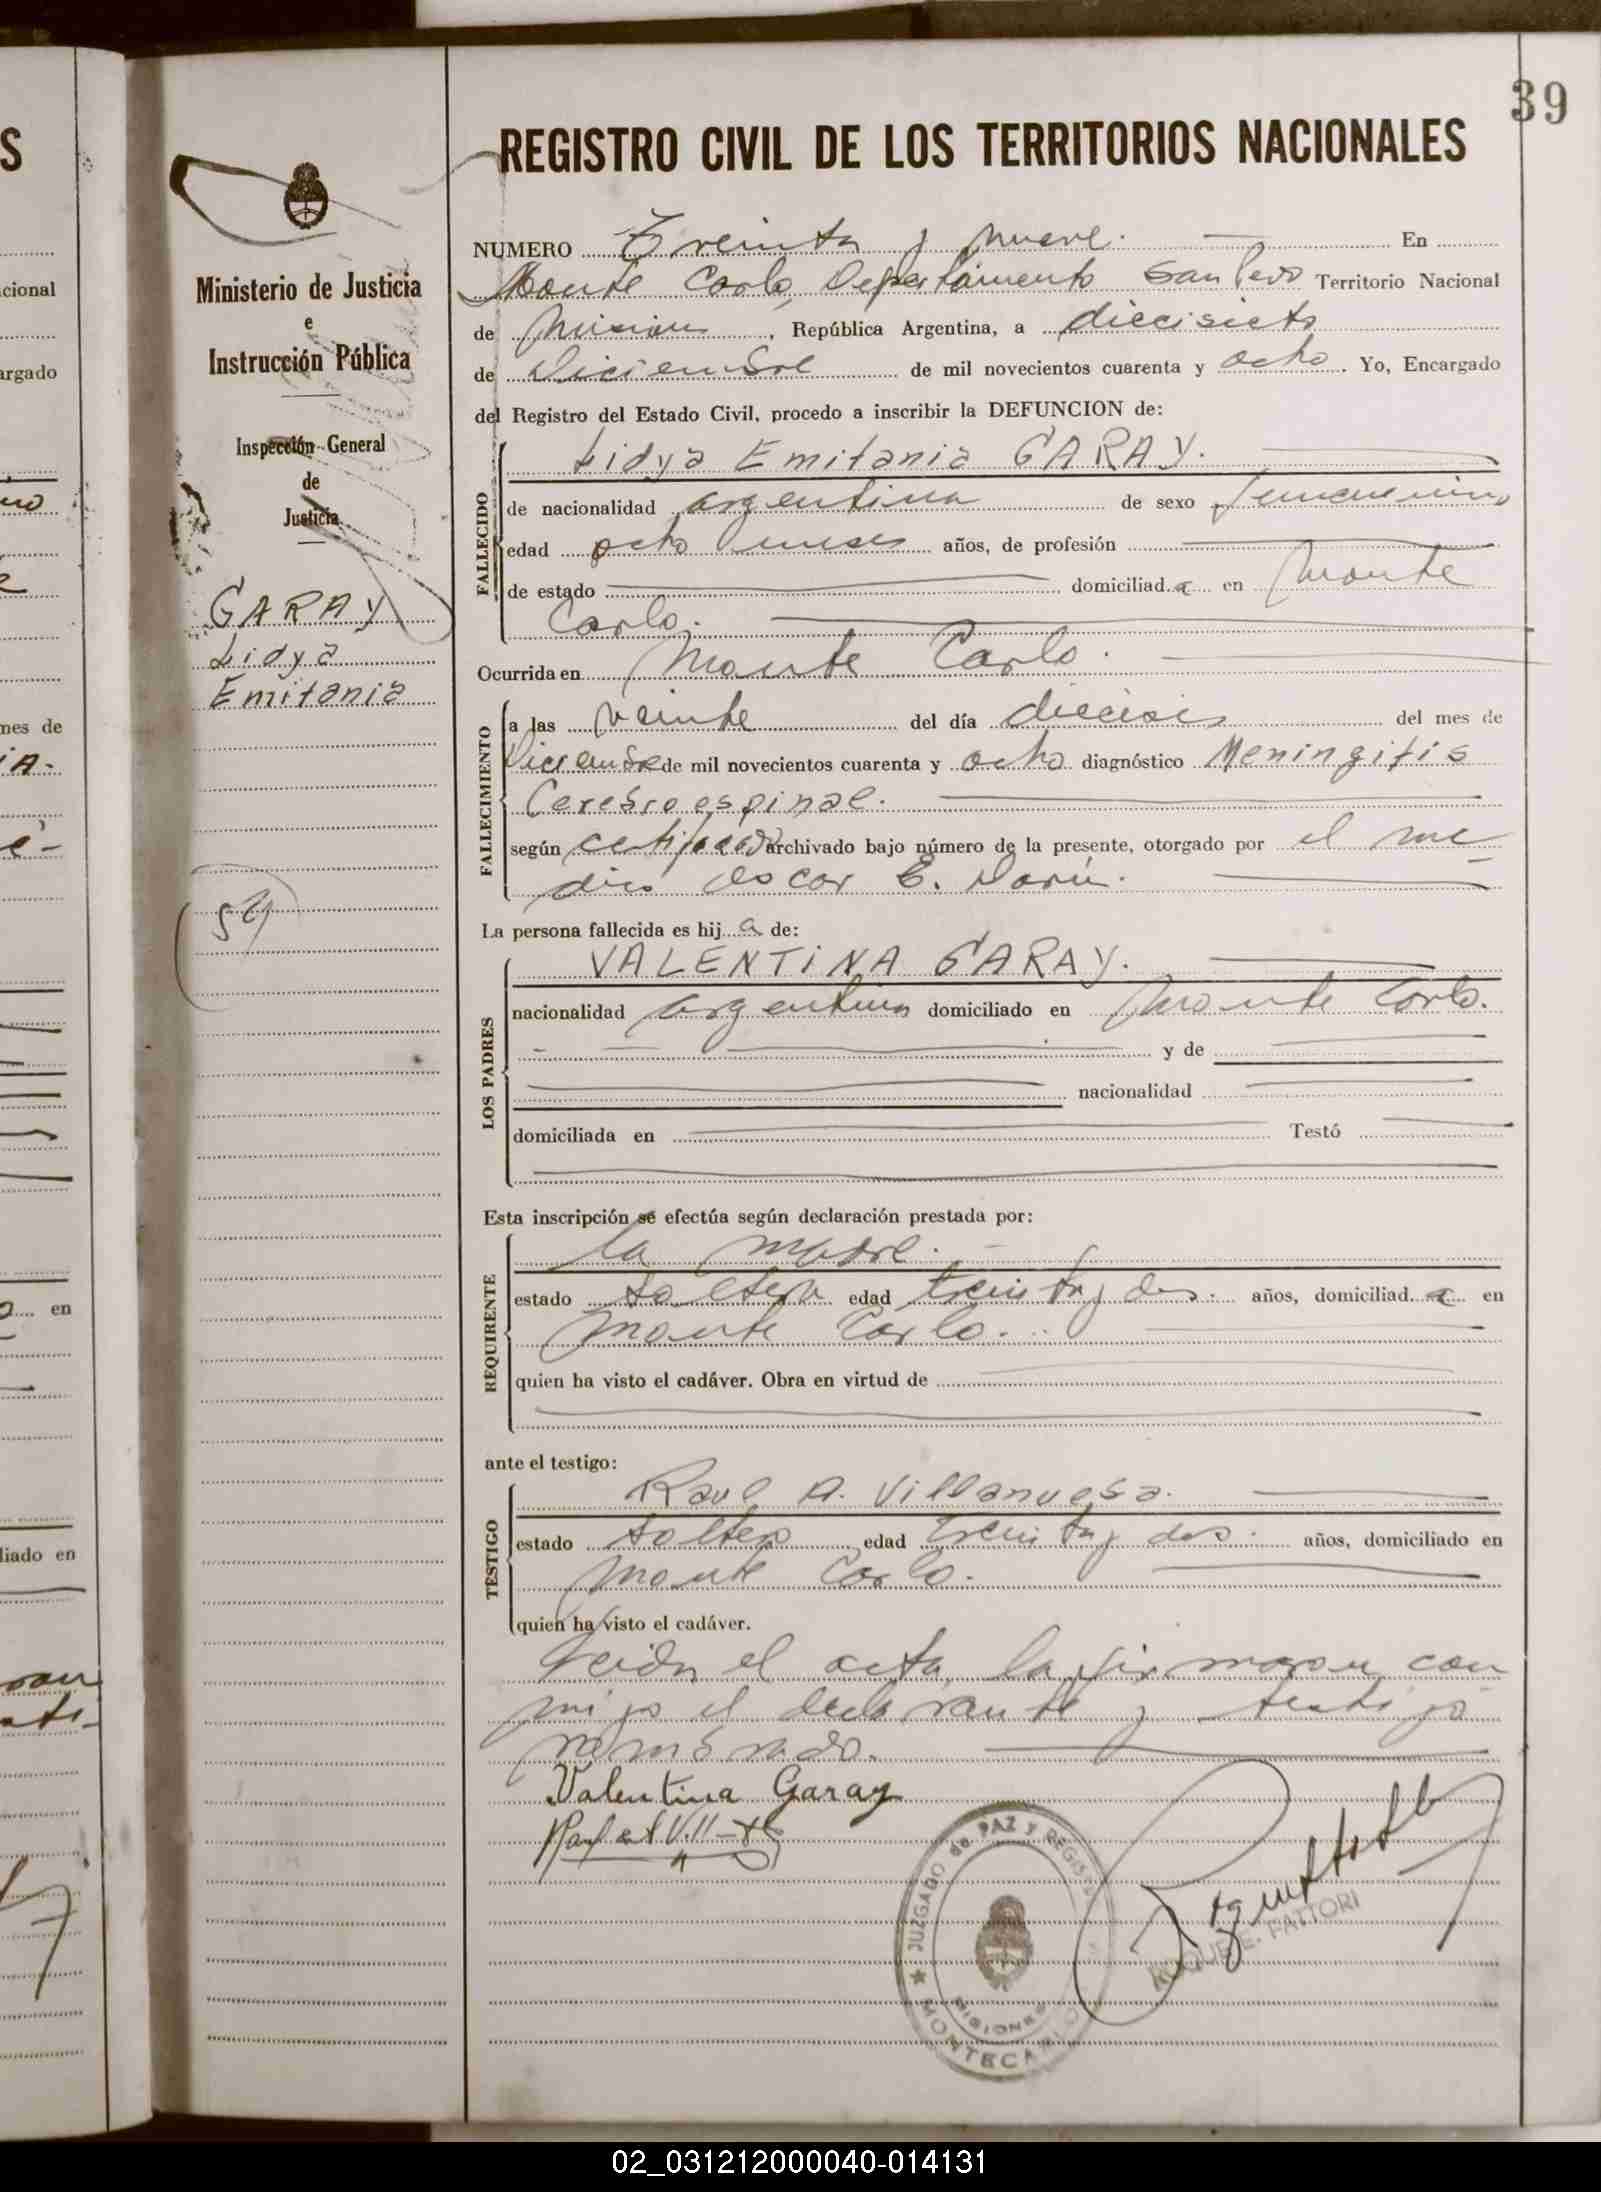 39
REGISTRO CIVIL DE LOS TERRITORIOS NACIONALES
Ministerio de Justicia
e
Instrucción Pública
Inspección General
de
Justicia
GARAY
Lidya
Emitania
59
NUMERO Treinta y nueve. En
Monte Carlo, Departamento San Pedro Territorio Nacional
de Misiones, República Argentina, a diecisiete
de Diciembre de mil novecientos cuarenta y ocho. Yo, Encargado
del Registro del Estado Civil, procedo a inscribir la DEFUNCION de:
FALLECIDO
Lidya Emitania GARAY.
de nacionalidad argentina de sexo femenino
edad ocho meses años, de profesión
de estado domiciliada en Monte
Carlo.
Ocurrida en Monte Carlo.
FALLECIMIENTO
a las veinte del día dieciseis del mes de
Diciembre de mil novecientos cuarenta y ocho diagnóstico Meningitis
Cerebroespinal.
según certificado archivado bajo número de la presente, otorgado por el me
dico Oscar E. Darú.
La persona fallecida es hija de:
LOS PADRES
VALENTINA GARAY.
nacionalidad argentina domiciliado en Monte Carlo.
y de
nacionalidad
domiciliada en Testó
Esta inscripción se efectúa según declaración prestada por:
REQUIRENTE
la madre.
estado soltera edad treinta y dos. años, domiciliada en
Monte Carlo.
quien ha visto el cadáver. Obra en virtud de
ante el testigo:
TESTIGO
Raul A. Villanueva.
estado soltero edad treinta y dos. años, domiciliado en
Monte Carlo.
quien ha visto el cadáver.
Leida el acta, la firmaron con
migo el declarante y testigo
nombrado.
Valentina Garay
JUZGADO de PAZ Y REGIS
MISIONES
MONTECARLO
ROQUE E. FATTORI
02_031212000040-014131